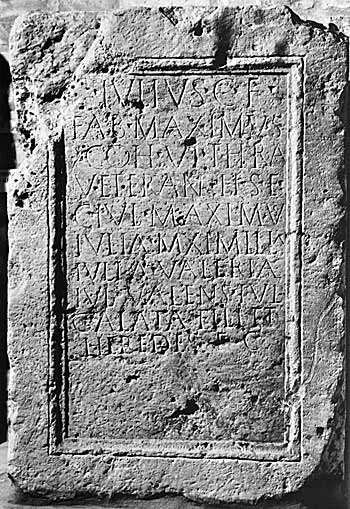 IVLIVS C F
FAB MAXIMVS
COH VI THRA
VETERAN H S E
C IVL MAXIMV
IVLIA MXIMILI
IVLIA VALERIA
IVL VALENS IVL
GALATA FILI ET
F C